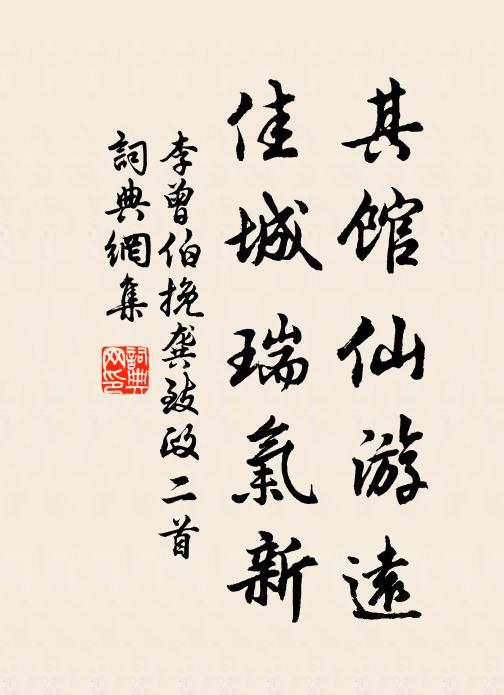 其馆仙游遠
佳城瑞氣新
李曾伯挽龚致政二首
詞典網集
詞典网印